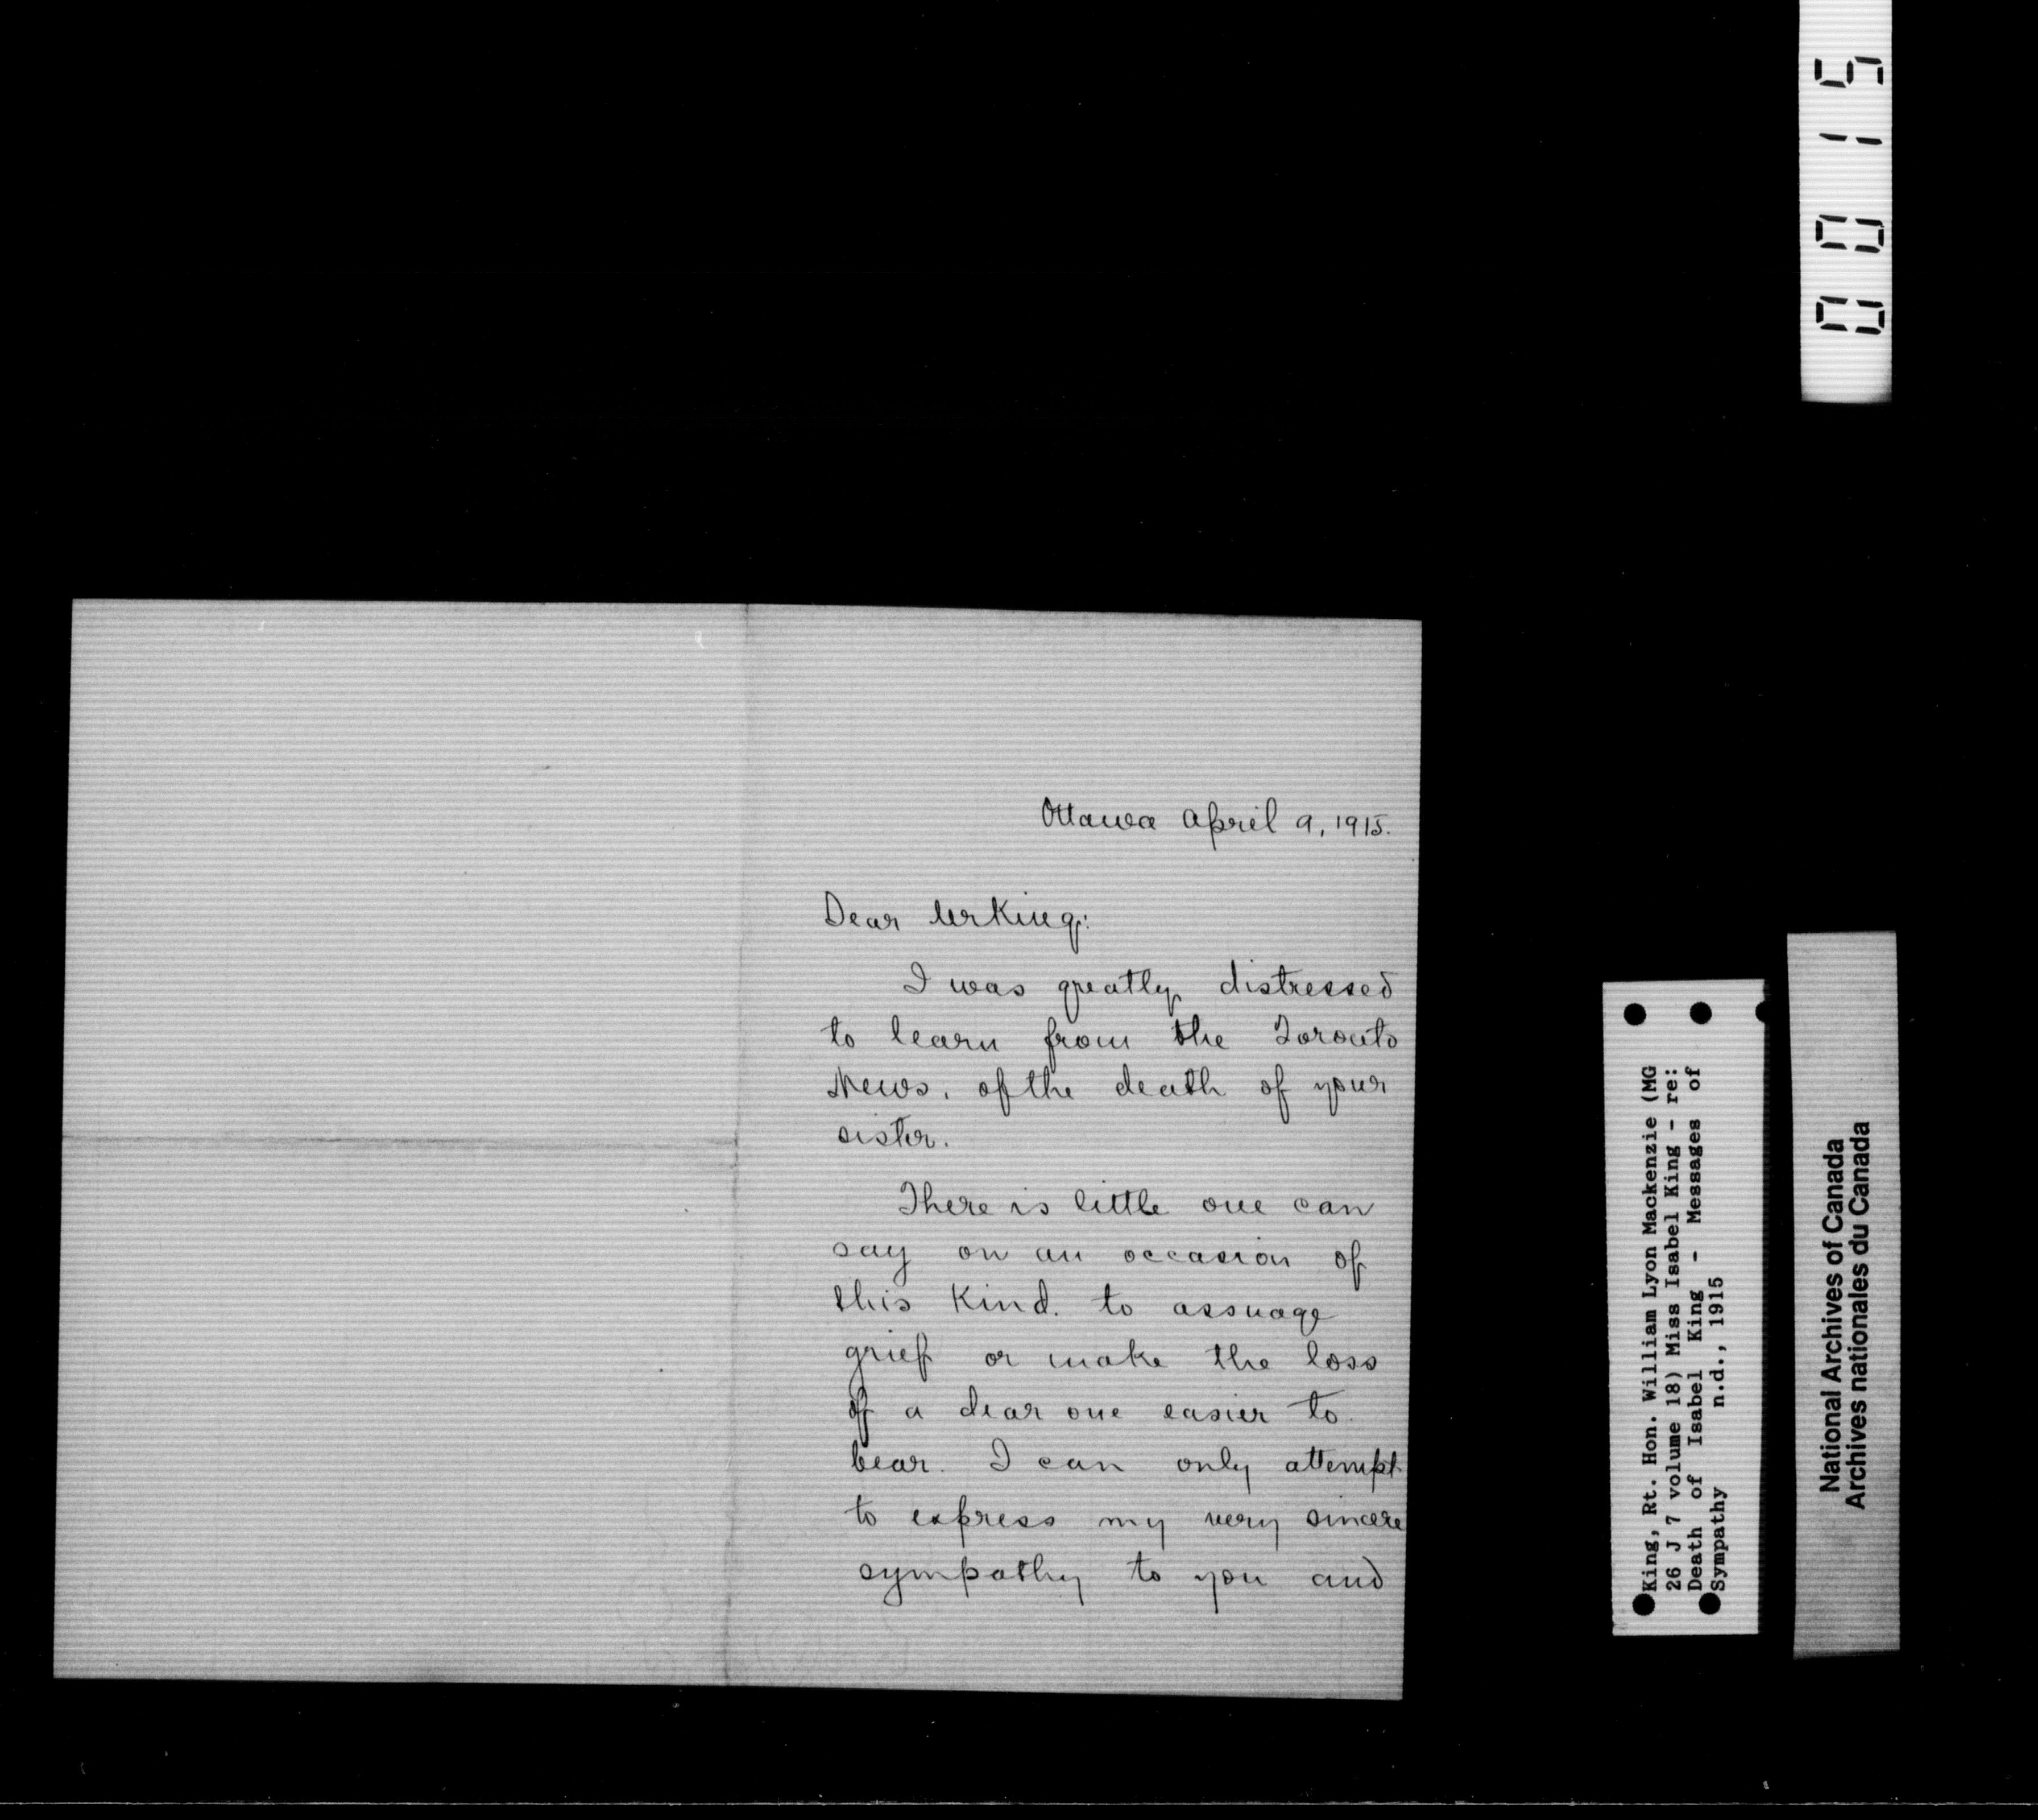 0015
Ottawa April 9, 1915.
Dear Mr King:
I was greatly distressed
to learn from the Toronto
News, of the death of your
sister.
There is little one can
say on an occasion of
this kind. to assuage
grief or make the loss
of a dear one easier to
bear. I can only attempt
to express my very sincere
sympathy to you and
King, Rt. Hon. William Lyon Mackenzie (MG
26 J 7 volume 18) Miss Isabel King - re:
Death of Isabel King - Messages of
Sympathy n.d., 1915
National Archives of Canada
Archives nationales du Canada